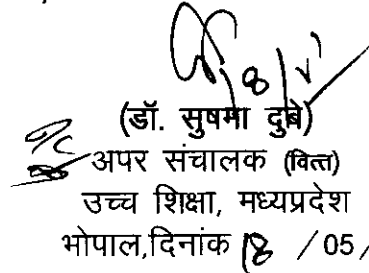 (डॉ. सुषमा दुबे)
अपर संचालक (वित्त)
उच्च शिक्षा, मध्यप्रदेश
भोपाल,दिनांक 18 / 05 /